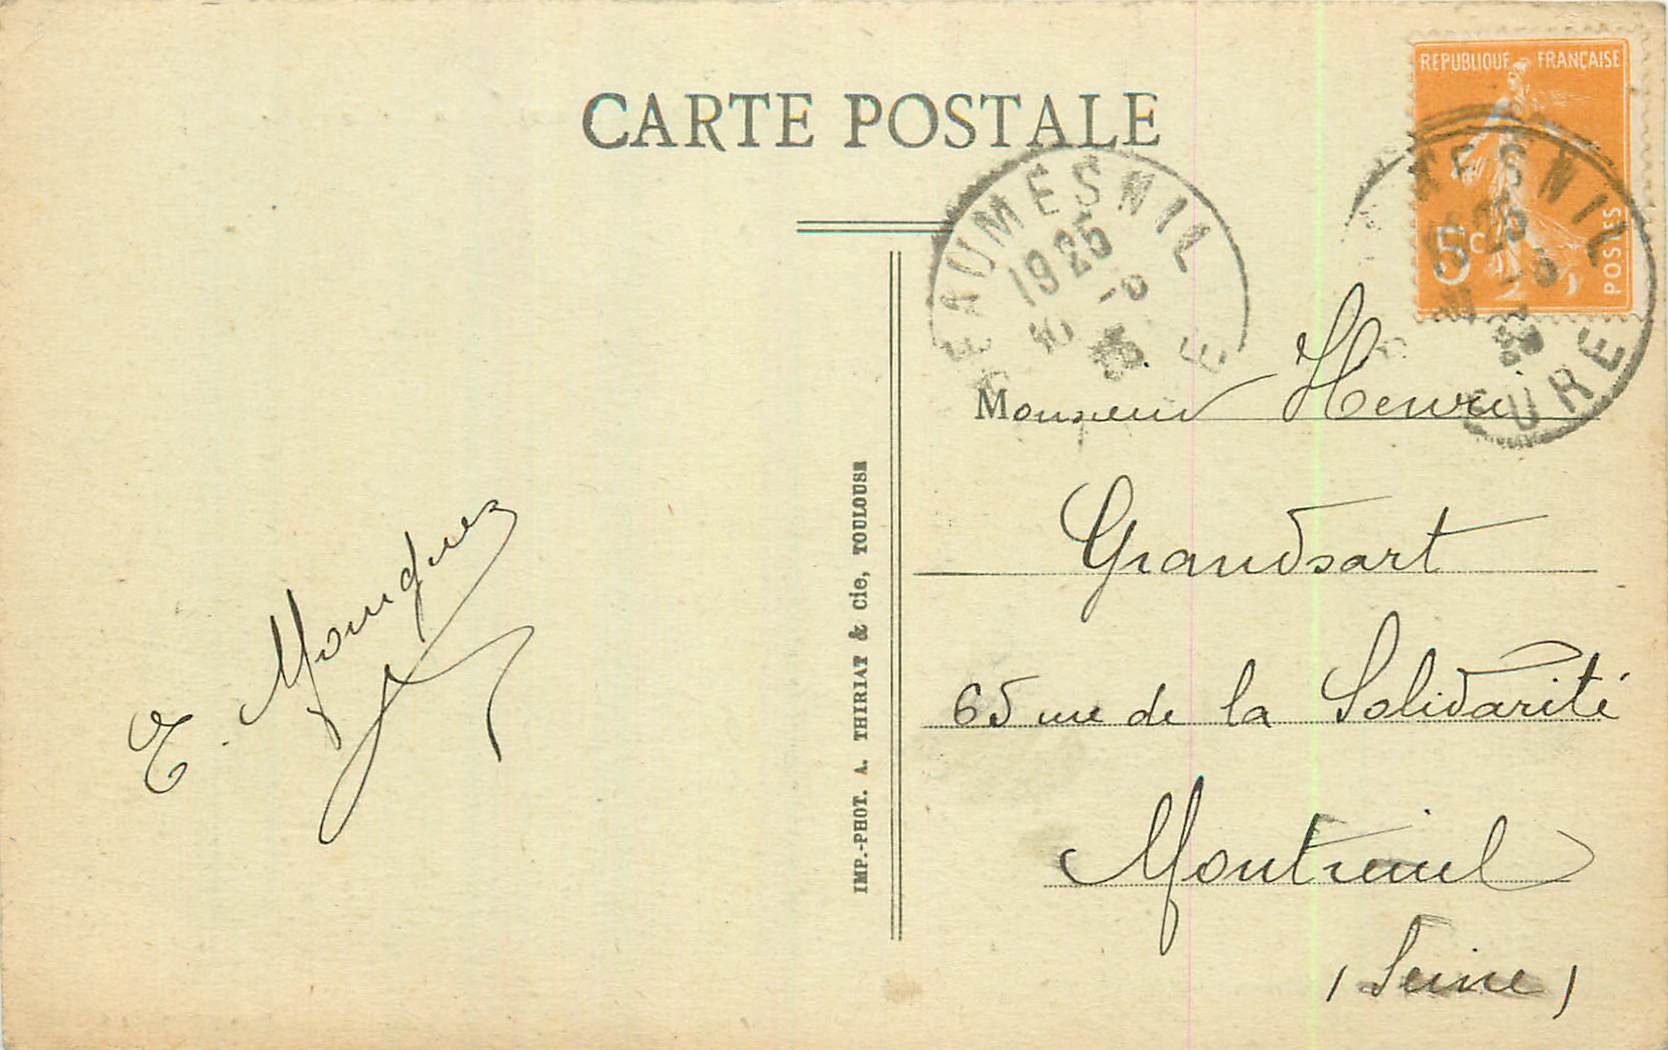 CARTE POSTALE
REPUBLIQUE FRANÇAISE
5c
POSTES
BEAUMESNIL
1925
10 -8
25
EURE
MESNIL
EURE
Monsieur Henri
Grandsart
65 rue de la Solidarité
Montreuil
(Seine)
E. Mouquez
IMP.-PHOT. A. THIRIAT & Cie, TOULOUSE